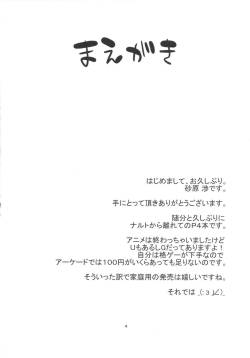 まえがき
はじめまして、お久しぶり。
砂原 渉です。
手にとって頂きありがとうございます。
随分と久しぶりに
ナルトから離れてのP4本です。
アニメは終わっちゃいましたけど
UもあるしGだってありますよ！
自分は格ゲーが下手なので
アーケードでは100円がいくらあっても足りないのです。
そういった訳で家庭用の発売は嬉しいですね。
それでは _(:3 」∠)_
4